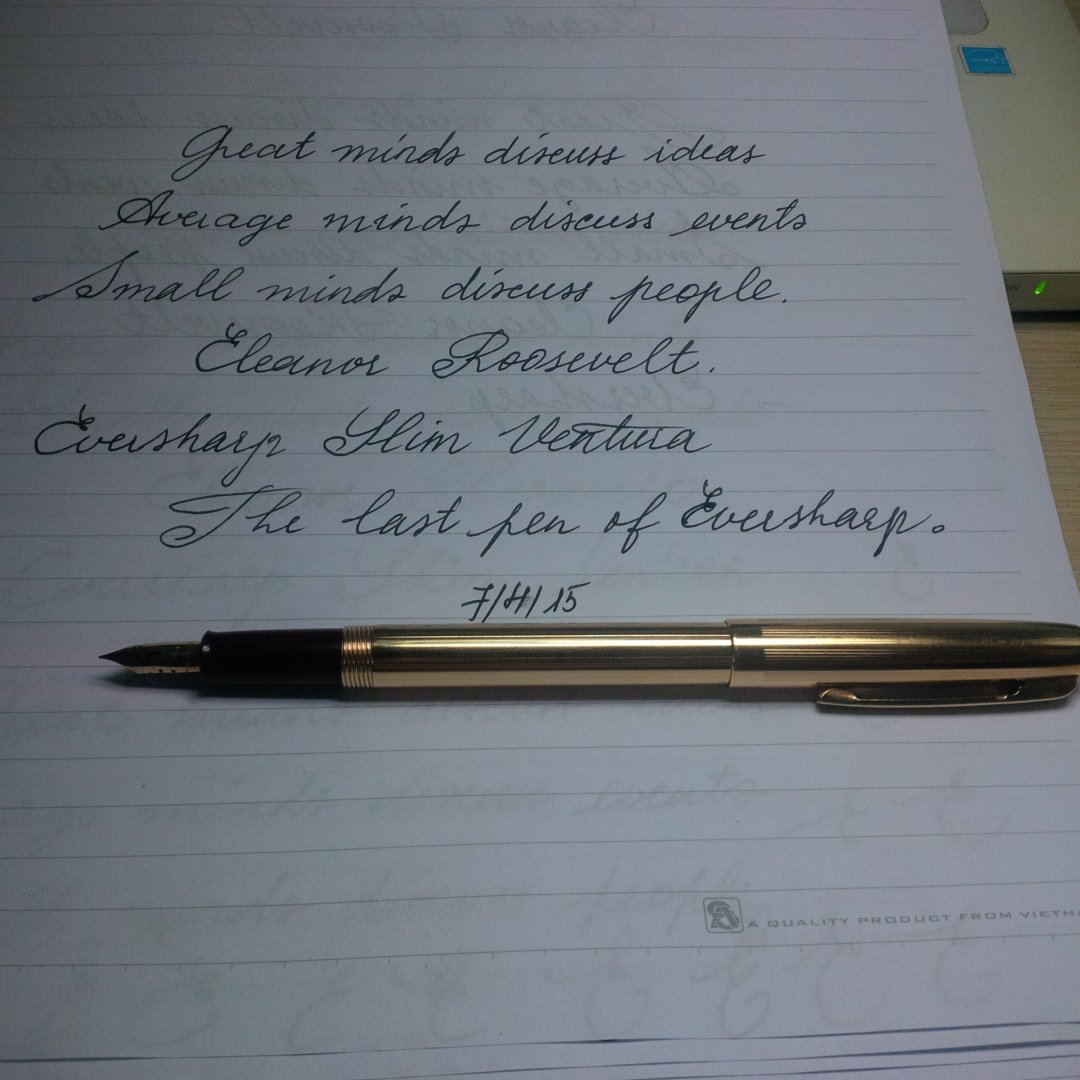 Great minds discuss ideas
Average minds discuss events
Small minds discuss people.
Eleanor Roosevelt.
Eversharp Slim Ventura
The last pen of Eversharp.
7/4/15
A QUALITY PRODUCT FROM